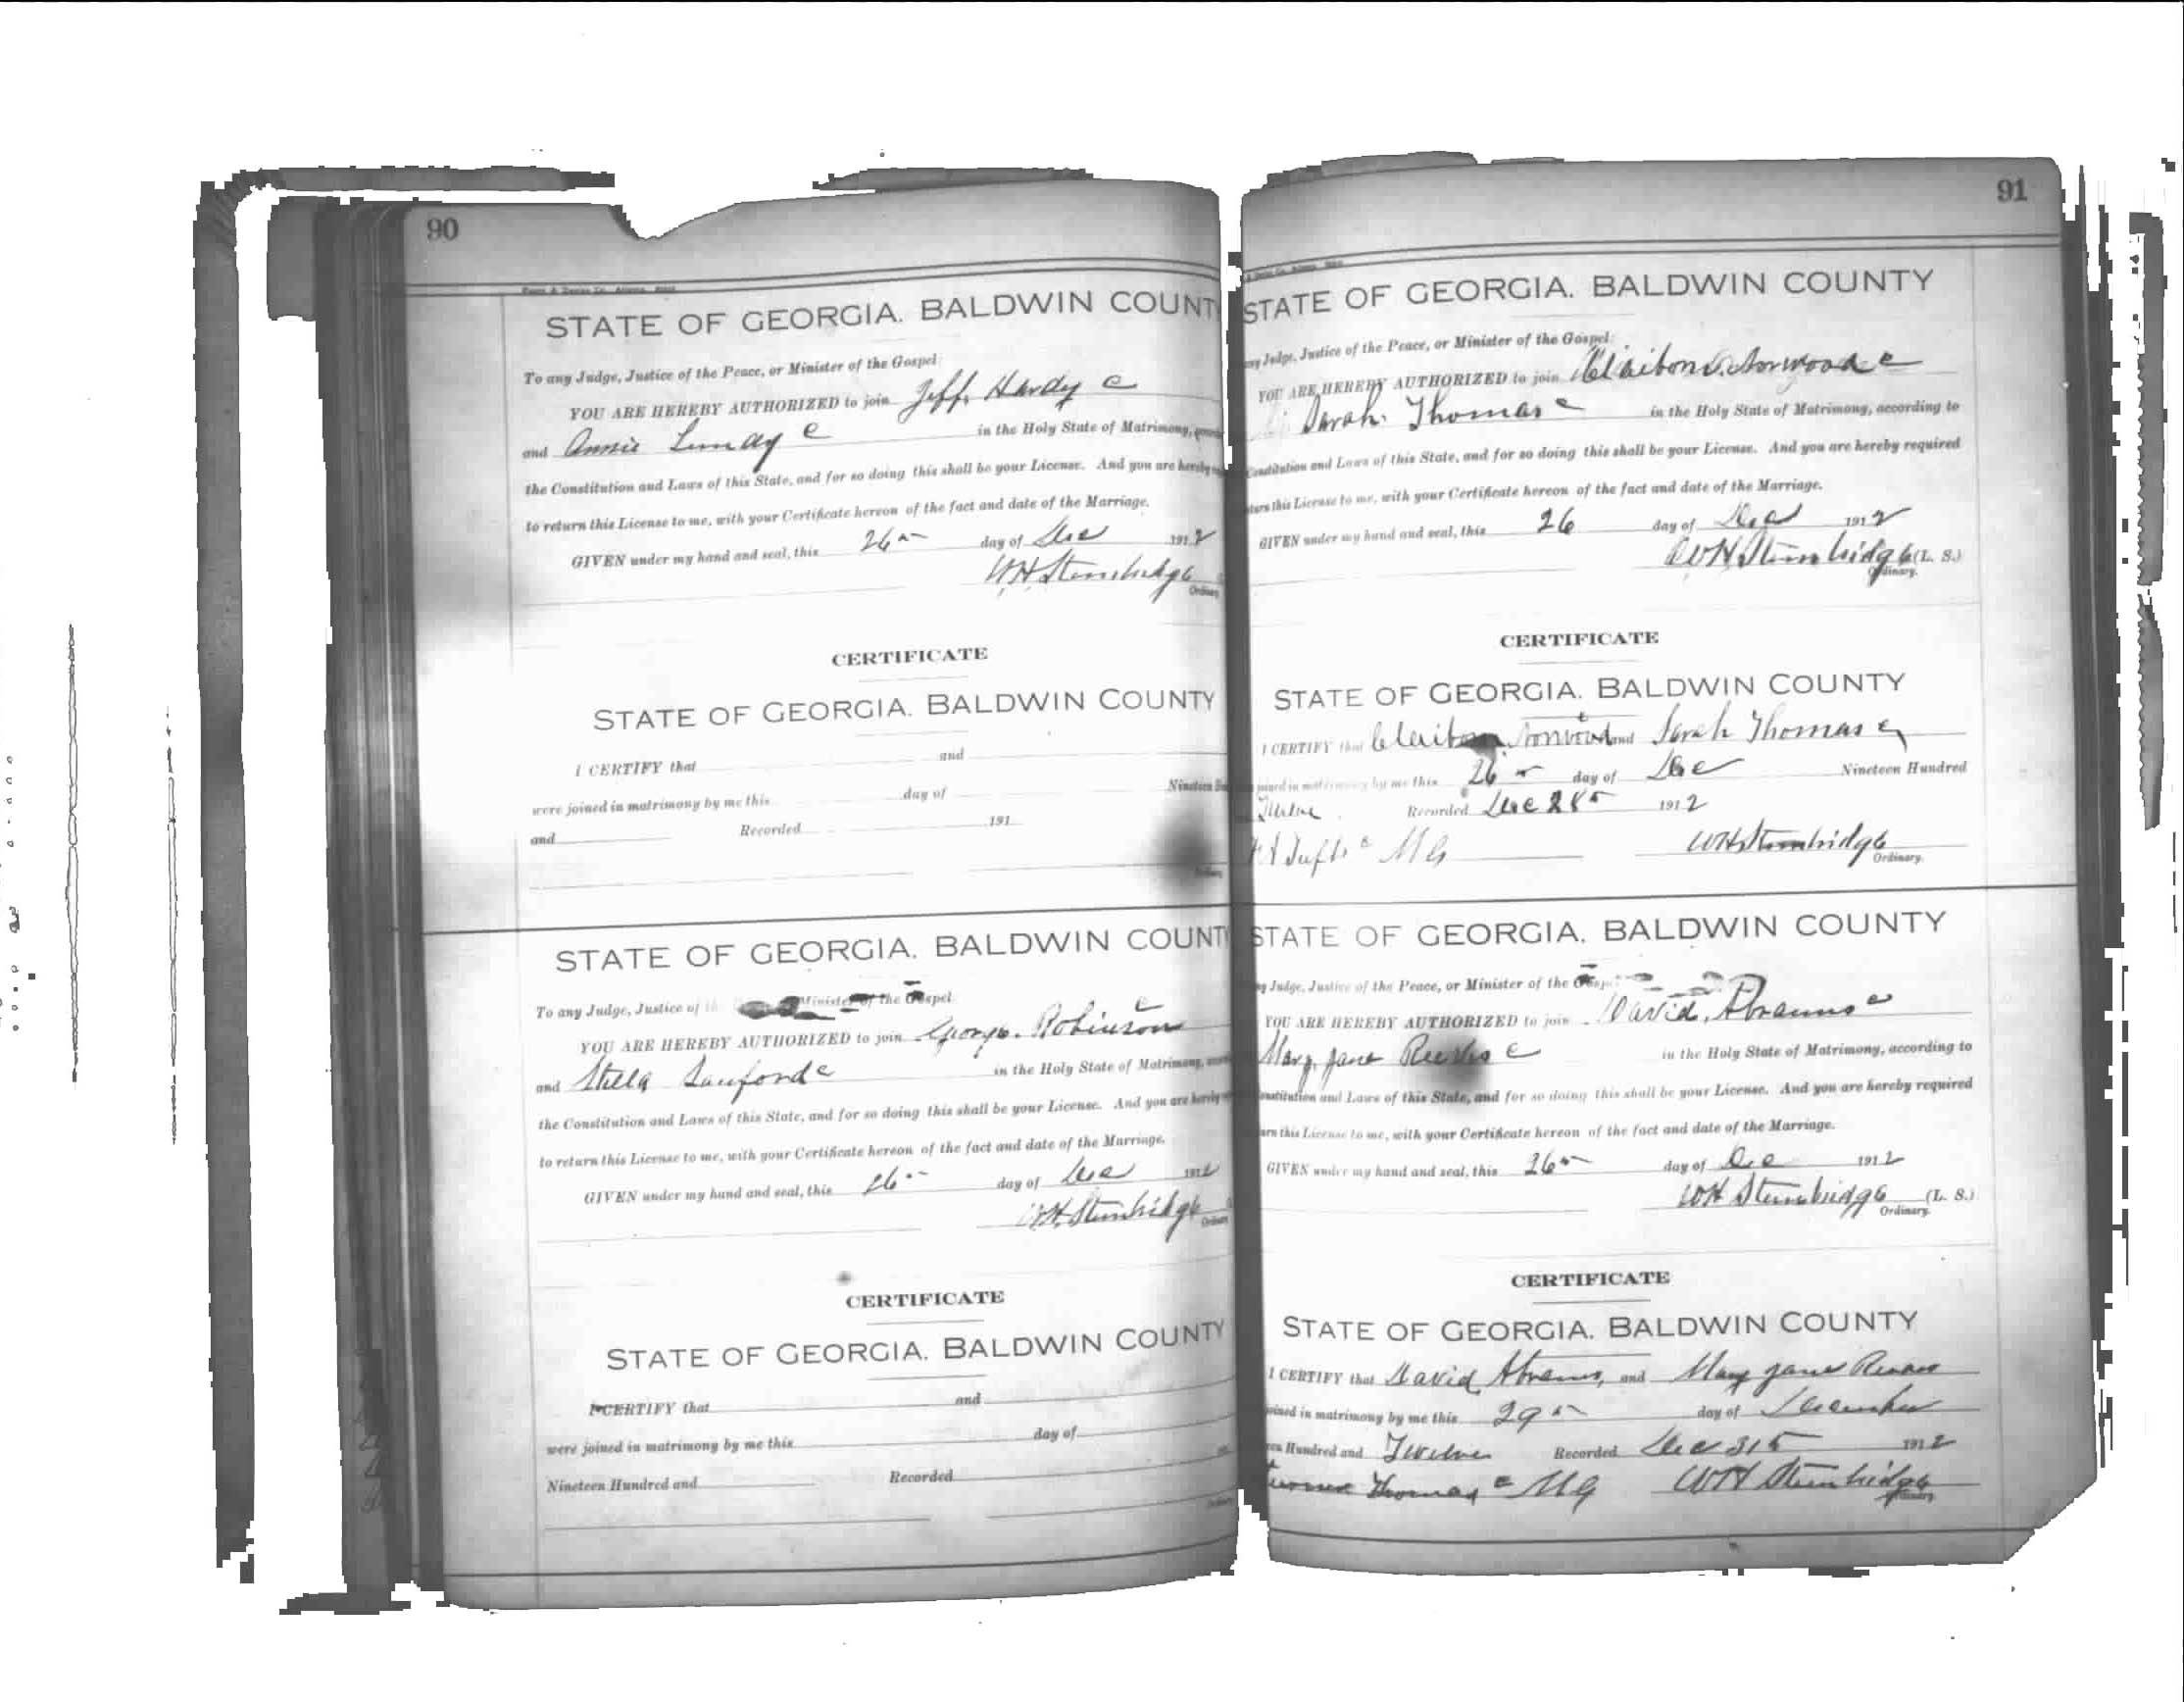 90
STATE OF GEORGIA. BALDWIN COUNT
To any Judge, Justice of the Peace, or Minister of the Gospel:
YOU ARE HEREBY AUTHORIZED to join Jeff Hardy c
and Annie c in the Holy State of Matrimony,
the Constitution and Laws of this State, and for so doing this shall be your License. And you are hereby
to return this License to me, with your Certificate hereon of the fact and date of the Marriage.
GIVEN under my hand and seal, this 26 day of Dec 1912
WH Stembridge
Ordinary
CERTIFICATE
STATE OF GEORGIA. BALDWIN COUNTY
I CERTIFY that and
were joined in matrimony by me this day of Nineteen
and Recorded 191
STATE OF GEORGIA. BALDWIN COUNT
To any Judge, Justice of Minister of the Gospel
YOU ARE HEREBY AUTHORIZED to join George Robinson c
and Stella Sanford c in the Holy State of Matrimony,
the Constitution and Laws of this State, and for so doing this shall be your License. And you are hereby
to return this License to me, with your Certificate hereon of the fact and date of the Marriage.
GIVEN under my hand and seal, this 26 day of Dec 1912
WH Stembridge
CERTIFICATE
STATE OF GEORGIA. BALDWIN COUNTY
I CERTIFY that and
were joined in matrimony by me this day of
Nineteen Hundred and Recorded
91
STATE OF GEORGIA. BALDWIN COUNTY
Judge, Justice of the Peace, or Minister of the Gospel:
YOU ARE HEREBY AUTHORIZED to join Claiborn Norwood c
Sarah Thomas c in the Holy State of Matrimony, according to
Constitution and Laws of this State, and for so doing this shall be your License. And you are hereby required
this License to me, with your Certificate hereon of the fact and date of the Marriage.
GIVEN under my hand and seal, this 26 day of Dec 1912
WH Stembridge (L. S.)
Ordinary.
CERTIFICATE
STATE OF GEORGIA. BALDWIN COUNTY
I CERTIFY that Claiborn Norwood c and Sarah Thomas c
joined in matrimony by me this 26 day of Dec Nineteen Hundred
Twelve Recorded Dec 28 1912
MG WH Stembridge
Ordinary.
STATE OF GEORGIA. BALDWIN COUNTY
Judge, Justice of the Peace, or Minister of the
YOU ARE HEREBY AUTHORIZED to join David Abrams c
Mary Jane c in the Holy State of Matrimony, according to
Constitution and Laws of this State, and for so doing this shall be your License. And you are hereby required
this License to me, with your Certificate hereon of the fact and date of the Marriage.
GIVEN under my hand and seal, this 26 day of Dec 1912
WH Stembridge (L. S.)
Ordinary.
CERTIFICATE
STATE OF GEORGIA. BALDWIN COUNTY
I CERTIFY that David Abrams, and Mary Jane
joined in matrimony by me this 29 day of December
Hundred and Twelve Recorded Dec 31 1912
Thomas c MG WH Stembridge